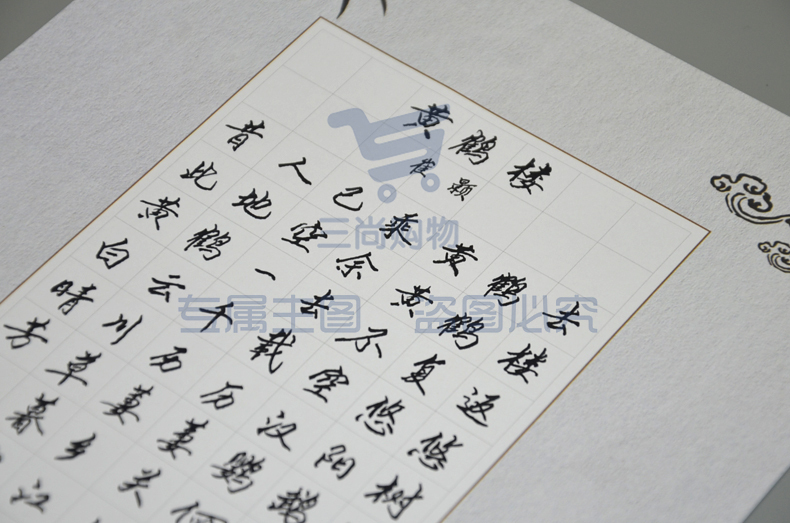 黄鹤楼
崔颢
昔人已乘黄鹤去
此地空余黄鹤楼
黄鹤一去不复返
白云千载空悠悠
晴川历历汉阳树
芳草萋萋鹦鹉
暮乡关何
江
三尚购物
专属主图 盗图必究